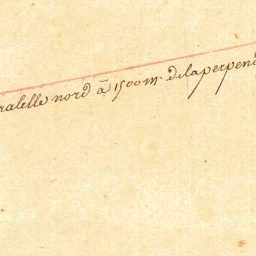 ralelle nord à 1500 m. de la perpend